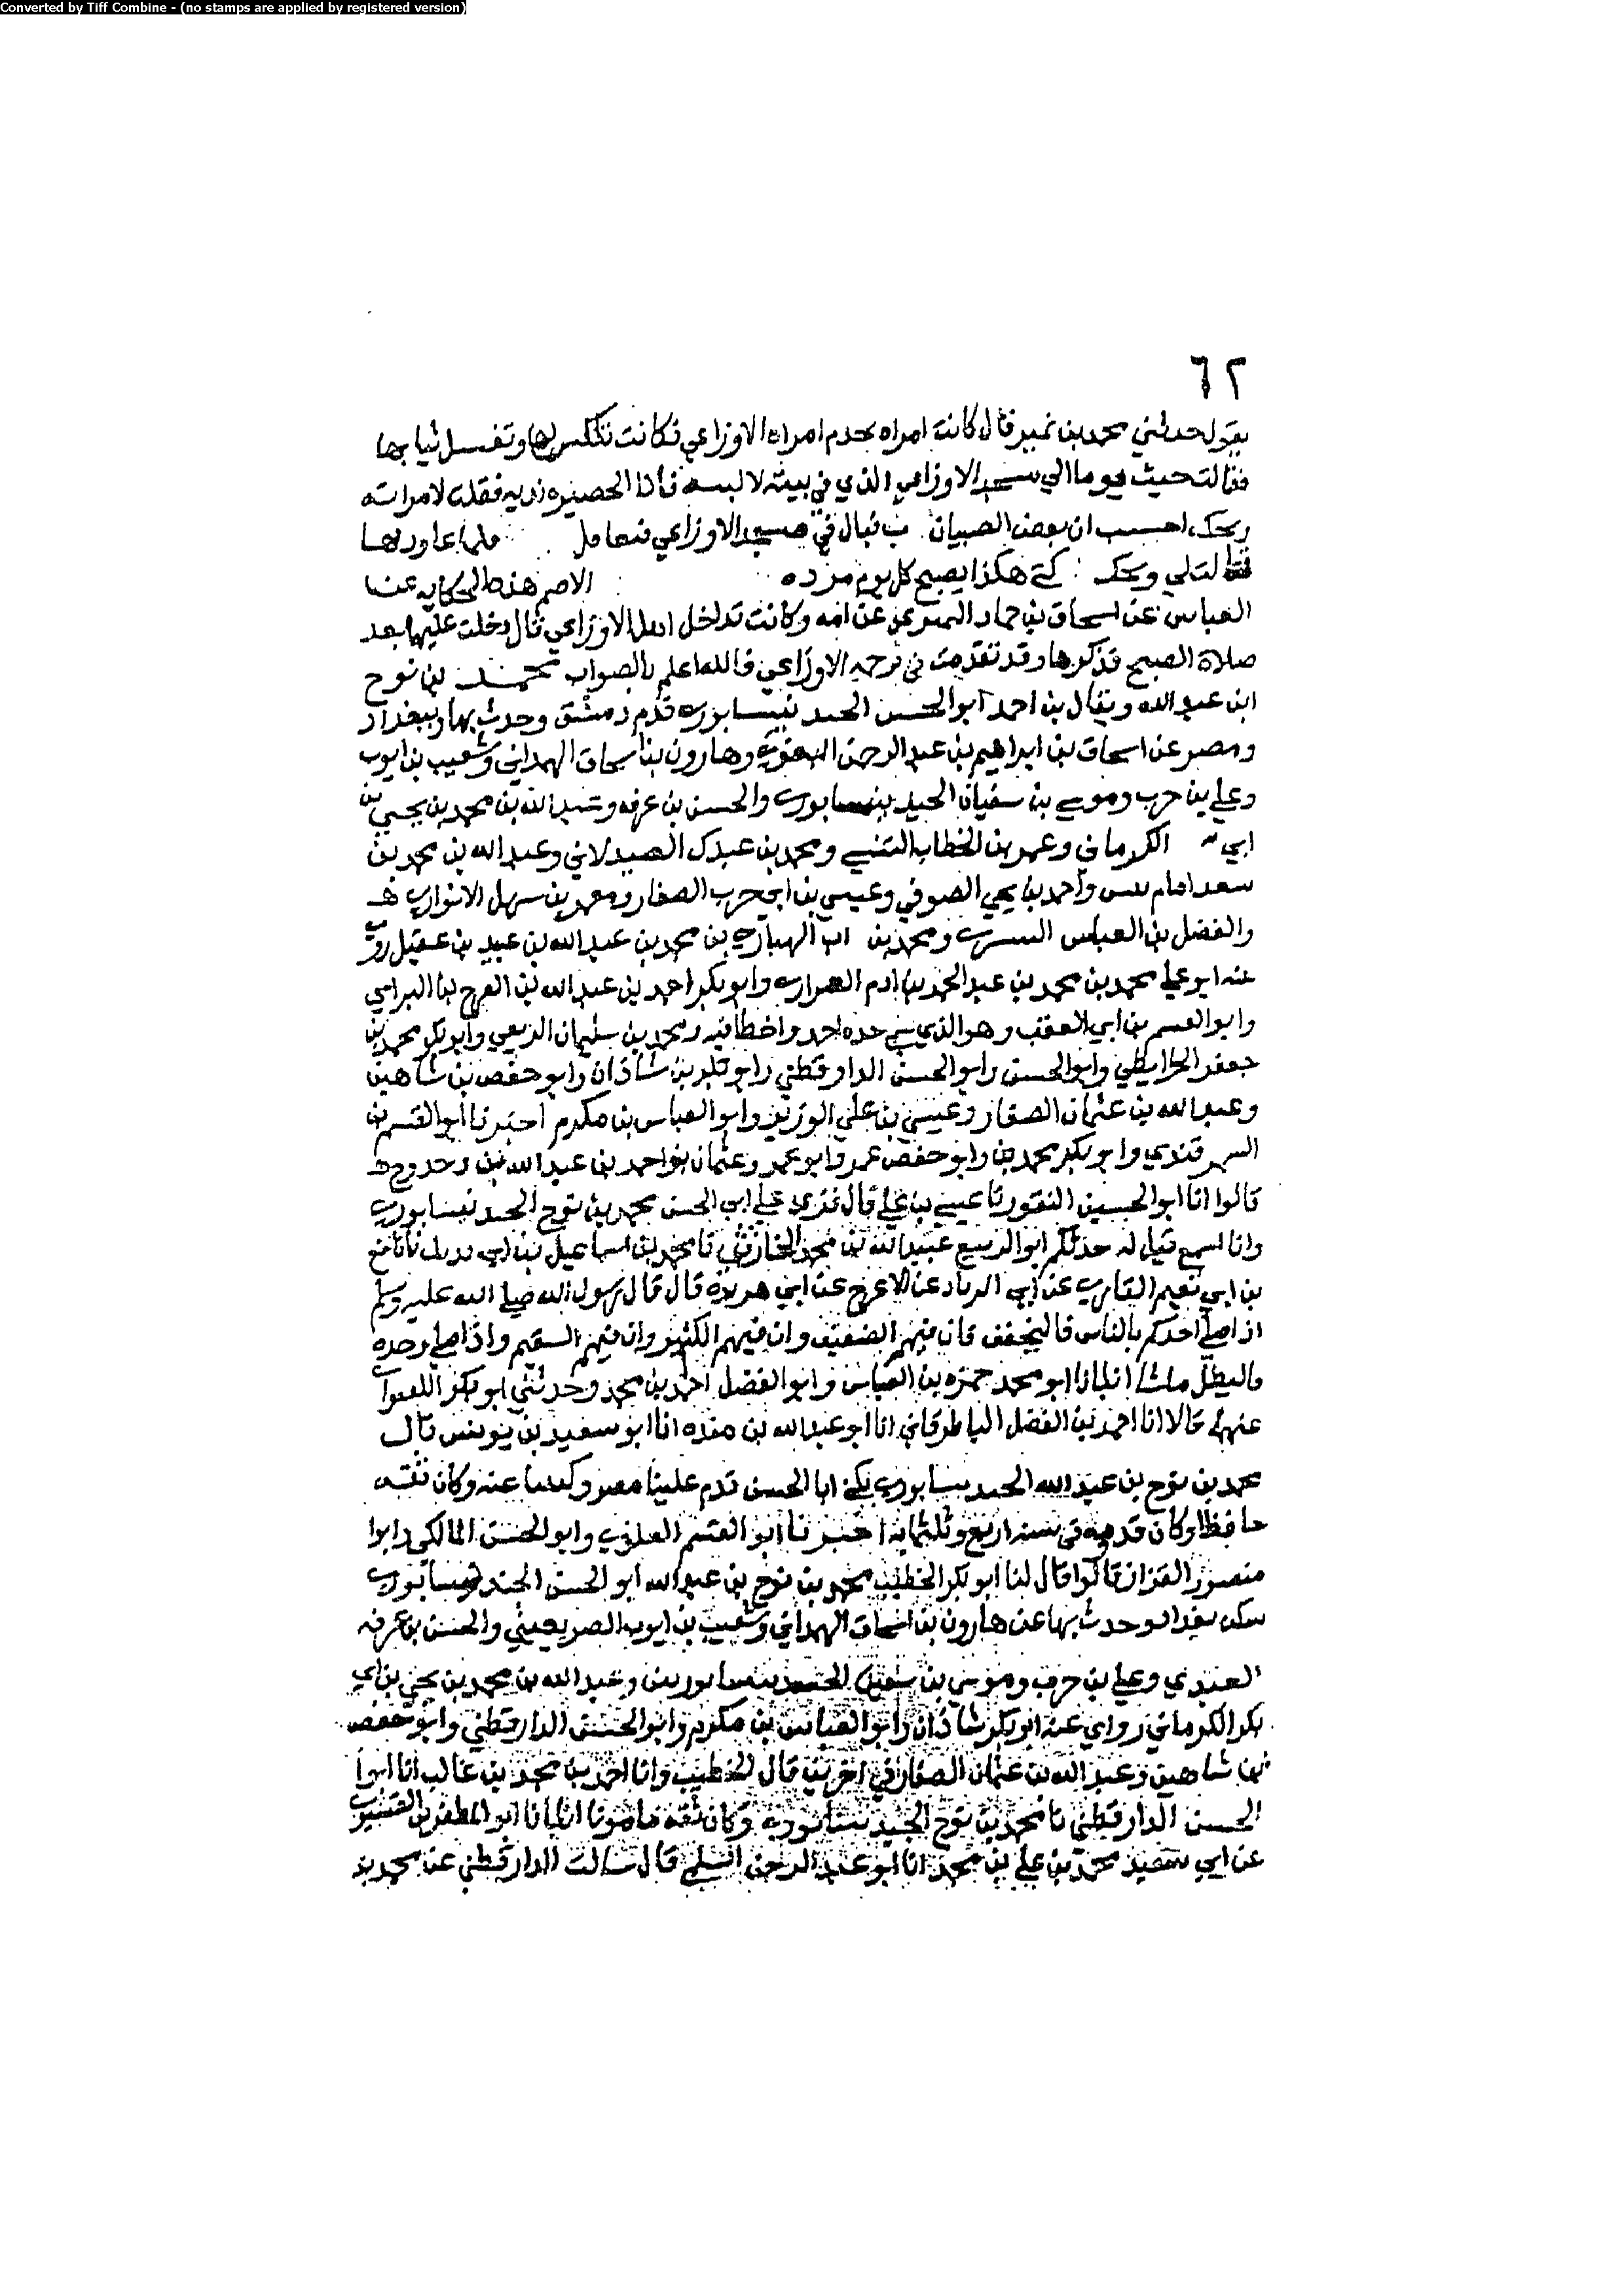 Converted by Tiff Combine - (no stamps are applied by registered version)
٦٢
يقول حدثني محمد بن نمير قال كانت امراه تخدم امراه الاوزاعي فكانت تكنس لها وتغسل ثيابها
فقالت جيت يوما الي مسجد الاوزاعي الذي في بيته فاذا الحصير نديه فقلت لامراته
ويحك احسب ان بعض الصبيان بال في مسجد الاوزاعي
فقالت لي ويحك هكذا يصبح كل يوم الاصم هذه الحكايه عن
العباس عن اسحاق بن حماد عن امه وكانت تدخل الاوزاعي قال دخلت عليها بعد
صلاة الصبح فذكرها وقد تقدمت في ترجمه الاوزاعي فالله اعلم بالصواب محمد بن نوح
ابن عبد الله ويقال بن احمد ابو الحسن الجند نيسابوري قدم دمشق وحدث بها وببغداد
ومصر عن اسحاق بن ابراهيم بن عبد الرحمن وهارون بن اسحاق الهمداني وشعيب بن ايوب
وعلي بن حرب وموسى بن سفيان الجند نيسابوري والحسن بن عرفه وعبد الله بن محمد بن يحيي بن
ابي الكرماني وعمر بن الخطاب ومحمد بن عبدك الصيدلاني وعبد الله بن محمد بن
واحمد بن يحيي الصوفي وعيسي بن ابي حرب الصفار ومعمر بن سهل
والفضل بن العباس ومحمد بن بن محمد بن عبد الله بن عبيد بن عقيل روى
عنه ابو علي محمد بن محمد بن عبد الحميد بن ادم الفزاري وابو بكر احمد بن عبد الله بن الفرج بن البرامي
وابو القسم بن ابي العقب وهو الذي سمى جده احمد واخطا فيه ومحمد بن سليمان الربعي وابو بكر محمد بن
جعفر الخرايطي وابو الحسن وابو الحسن الدارقطني وابو بكر بن شاذان وابو حفص بن شاهين
وعبد الله بن عثمان الصفار وعيسي بن علي الوزير وابو العباس بن مكرم اخبرنا ابو القسم بن
السمرقندي وابو بكر محمد بن وابو حفص عمر وابو محمد وعثمان بنو احمد بن عبد الله بن دحروج
قالوا انا ابو الحسين النقور نا عيسى بن علي قال قرى على ابي الحسن محمد بن نوح الجند نيسابوري
وانا اسمع قيل له حدثكم ابو الربيع عبيد الله بن محمد الحارثي نا محمد بن اسماعيل بن ابي فديك نا نافع
بن ابي نعيم القاري عن ابي الزناد عن الاعرج عن ابي هريرة قال قال رسول الله صلى الله عليه وسلم
اذا صلى احدكم بالناس فاليخفف فان فيهم الضعيف وان فيهم الكبير وان فيهم السقيم واذا صلى وحده
فاليطل ما شا انبانا ابو محمد حمزه بن العباس وابو الفضل احمد بن محمد وحدثني ابو بكر اللفتواني
عنهما قالا انا احمد بن الفضل الباطرقاني انا ابو عبد الله بن منده انا ابو سعيد بن يونس قال
محمد بن نوح بن عبد الله الجند نيسابوري يكنى ابا الحسن قدم علينا مصر وكتبنا عنه وكان ثقه
حافظا وكان قدومه في سنه اربع وثلثمايه اخبرنا ابو القسم العلوي وابو الحسن المالكي وابوا
منصور القزاز قالوا قال لنا ابو بكر الخطيب محمد بن نوح بن عبد الله ابو الحسن الجند نيسابوري
سكن بغداد وحدث بها عن هارون بن اسحاق الهمداني وشعيب بن ايوب الصريفيني والحسن بن عرفه
العبدي وعلي بن حرب وموسي بن سفيان الجند نيسابوريين وعبد الله بن محمد بن يحيى بن ابي
بكر الكرماني روى عنه ابو بكر شاذان وابو العباس بن مكرم وابو الحسن الدارقطني وابو حفص
بن شاهين وعبد الله بن عثمان الصفار في اخرين قال الخطيب وانا احمد بن محمد بن غالب انا ابوا
الحسن الدارقطني نا محمد بن نوح الجند نيسابوري وكان ثقه مامونا انبانا ابو المظفر بن القشيري
عن ابي سعيد محمد بن علي بن محمد انا ابو عبد الرحمن السلمي قال سالت الدارقطني عن محمد بن